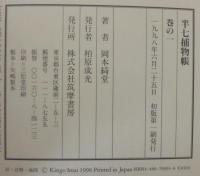 半七捕物帳
巻の一
一九九八年六月二十五日 初版第一刷発行
著者 岡本綺堂
発行者 柏原成光
発行所 株式会社筑摩書房
東京都台東区蔵前二-五-三
郵便番号 一一一-八七五五
振替 〇〇一六〇-八-四一二三
印刷
製本
1998 Printed in Japan